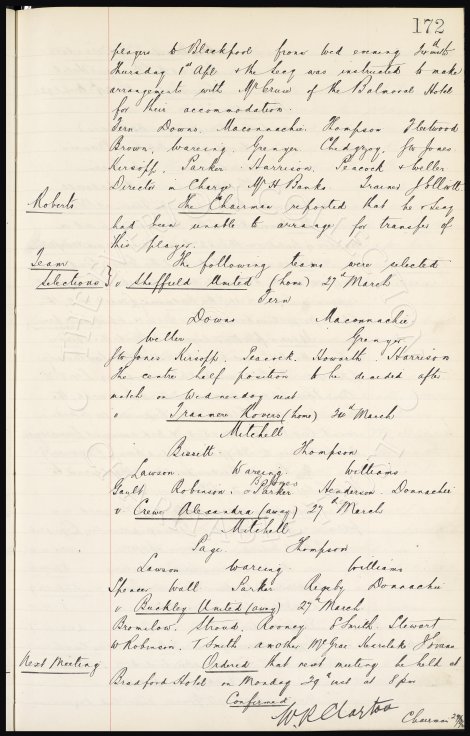 172
players to Blackpool from Wed evening
Thursday 1st Apl & the Secy was instructed to make
arrangements with Mr Cruse of the Balmoral Hotel
for their accommodation.
Fern Downs, Maconnachie, Thompson Fleetwood
Brown, Wareing, Grenyer Chedgzoy, Jto Jones
Kirsopp, Parker Harrison, Peacock & Weller
Director in Charge, Mr H Banks. Trainer J Elliott
Roberts
The Chairman reported that he & Secy
had been unable to arrange for transfer of
this player.
Team
Selections
The following teams were selected
v Sheffield United (home) 27th March
Fern
Downs Maconnachie
Weller Grenyer
Jto Jones. Kirsopp. Peacock. Howarth. Harrison
The centre half position to be decided after
match on Wednesday next
v Tranmere Rovers (home) 24th March
Mitchell
Bissett Thompson
Lawson. Wareing. Williams
B Jones
Gault Robinson. Parker Henderson. Donnachie
v Crewe Alexandra (away) 27th March
Mitchell
Page. Thompson
Lawson Wareing. Williams
Spencer Wall Parker Rigsby Donnachie
v Buckley United (away) 27th March
Bromilow, Stroud, Rooney S Smith. Stewart
W Robinson. T Smith. another McGrae J Evans
Next Meeting
Ordered that next meeting be held at
Bradford Hotel on Monday 29th inst at 8pm
Confirmed
W.R. Clayton
Chairman